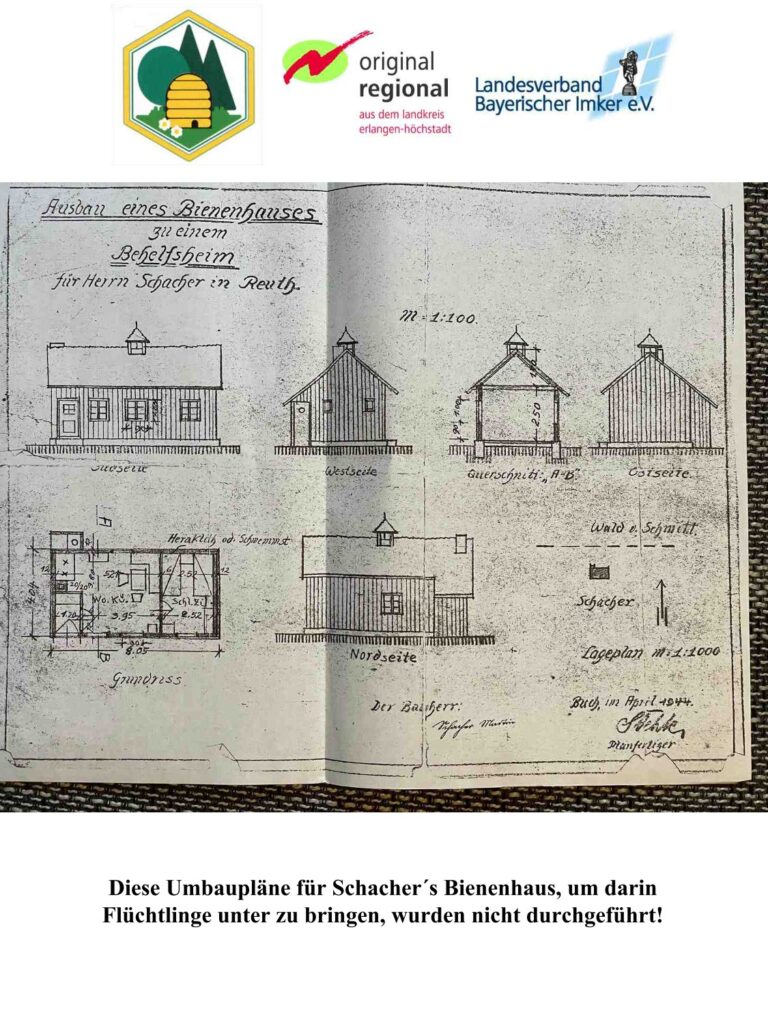 original
regional
aus dem landkreis
erlangen-höchstadt
Landesverband
Bayerischer Imker e.V.
Ausbau eines Bienenhauses
zu einem
Behelfsheim
für Herrn Schacher in Reuth.
M = 1:100.
2.50
Südseite
Westseite
Querschnitt „A-B"
Ostseite
Heraklith od. Schwemmst
Wald v. Schmitt.
Schacher
Lageplan M = 1:1000
12
2.52
12
4.04
Wo.Kü.
Schl.Zi
3.95
2.52
8.05
Grundriss
Nordseite
Der Bauherr:
Schacher Martin
Buch, im April 1944.
Planfertiger
Diese Umbaupläne für Schacher´s Bienenhaus, um darin
Flüchtlinge unter zu bringen, wurden nicht durchgeführt!